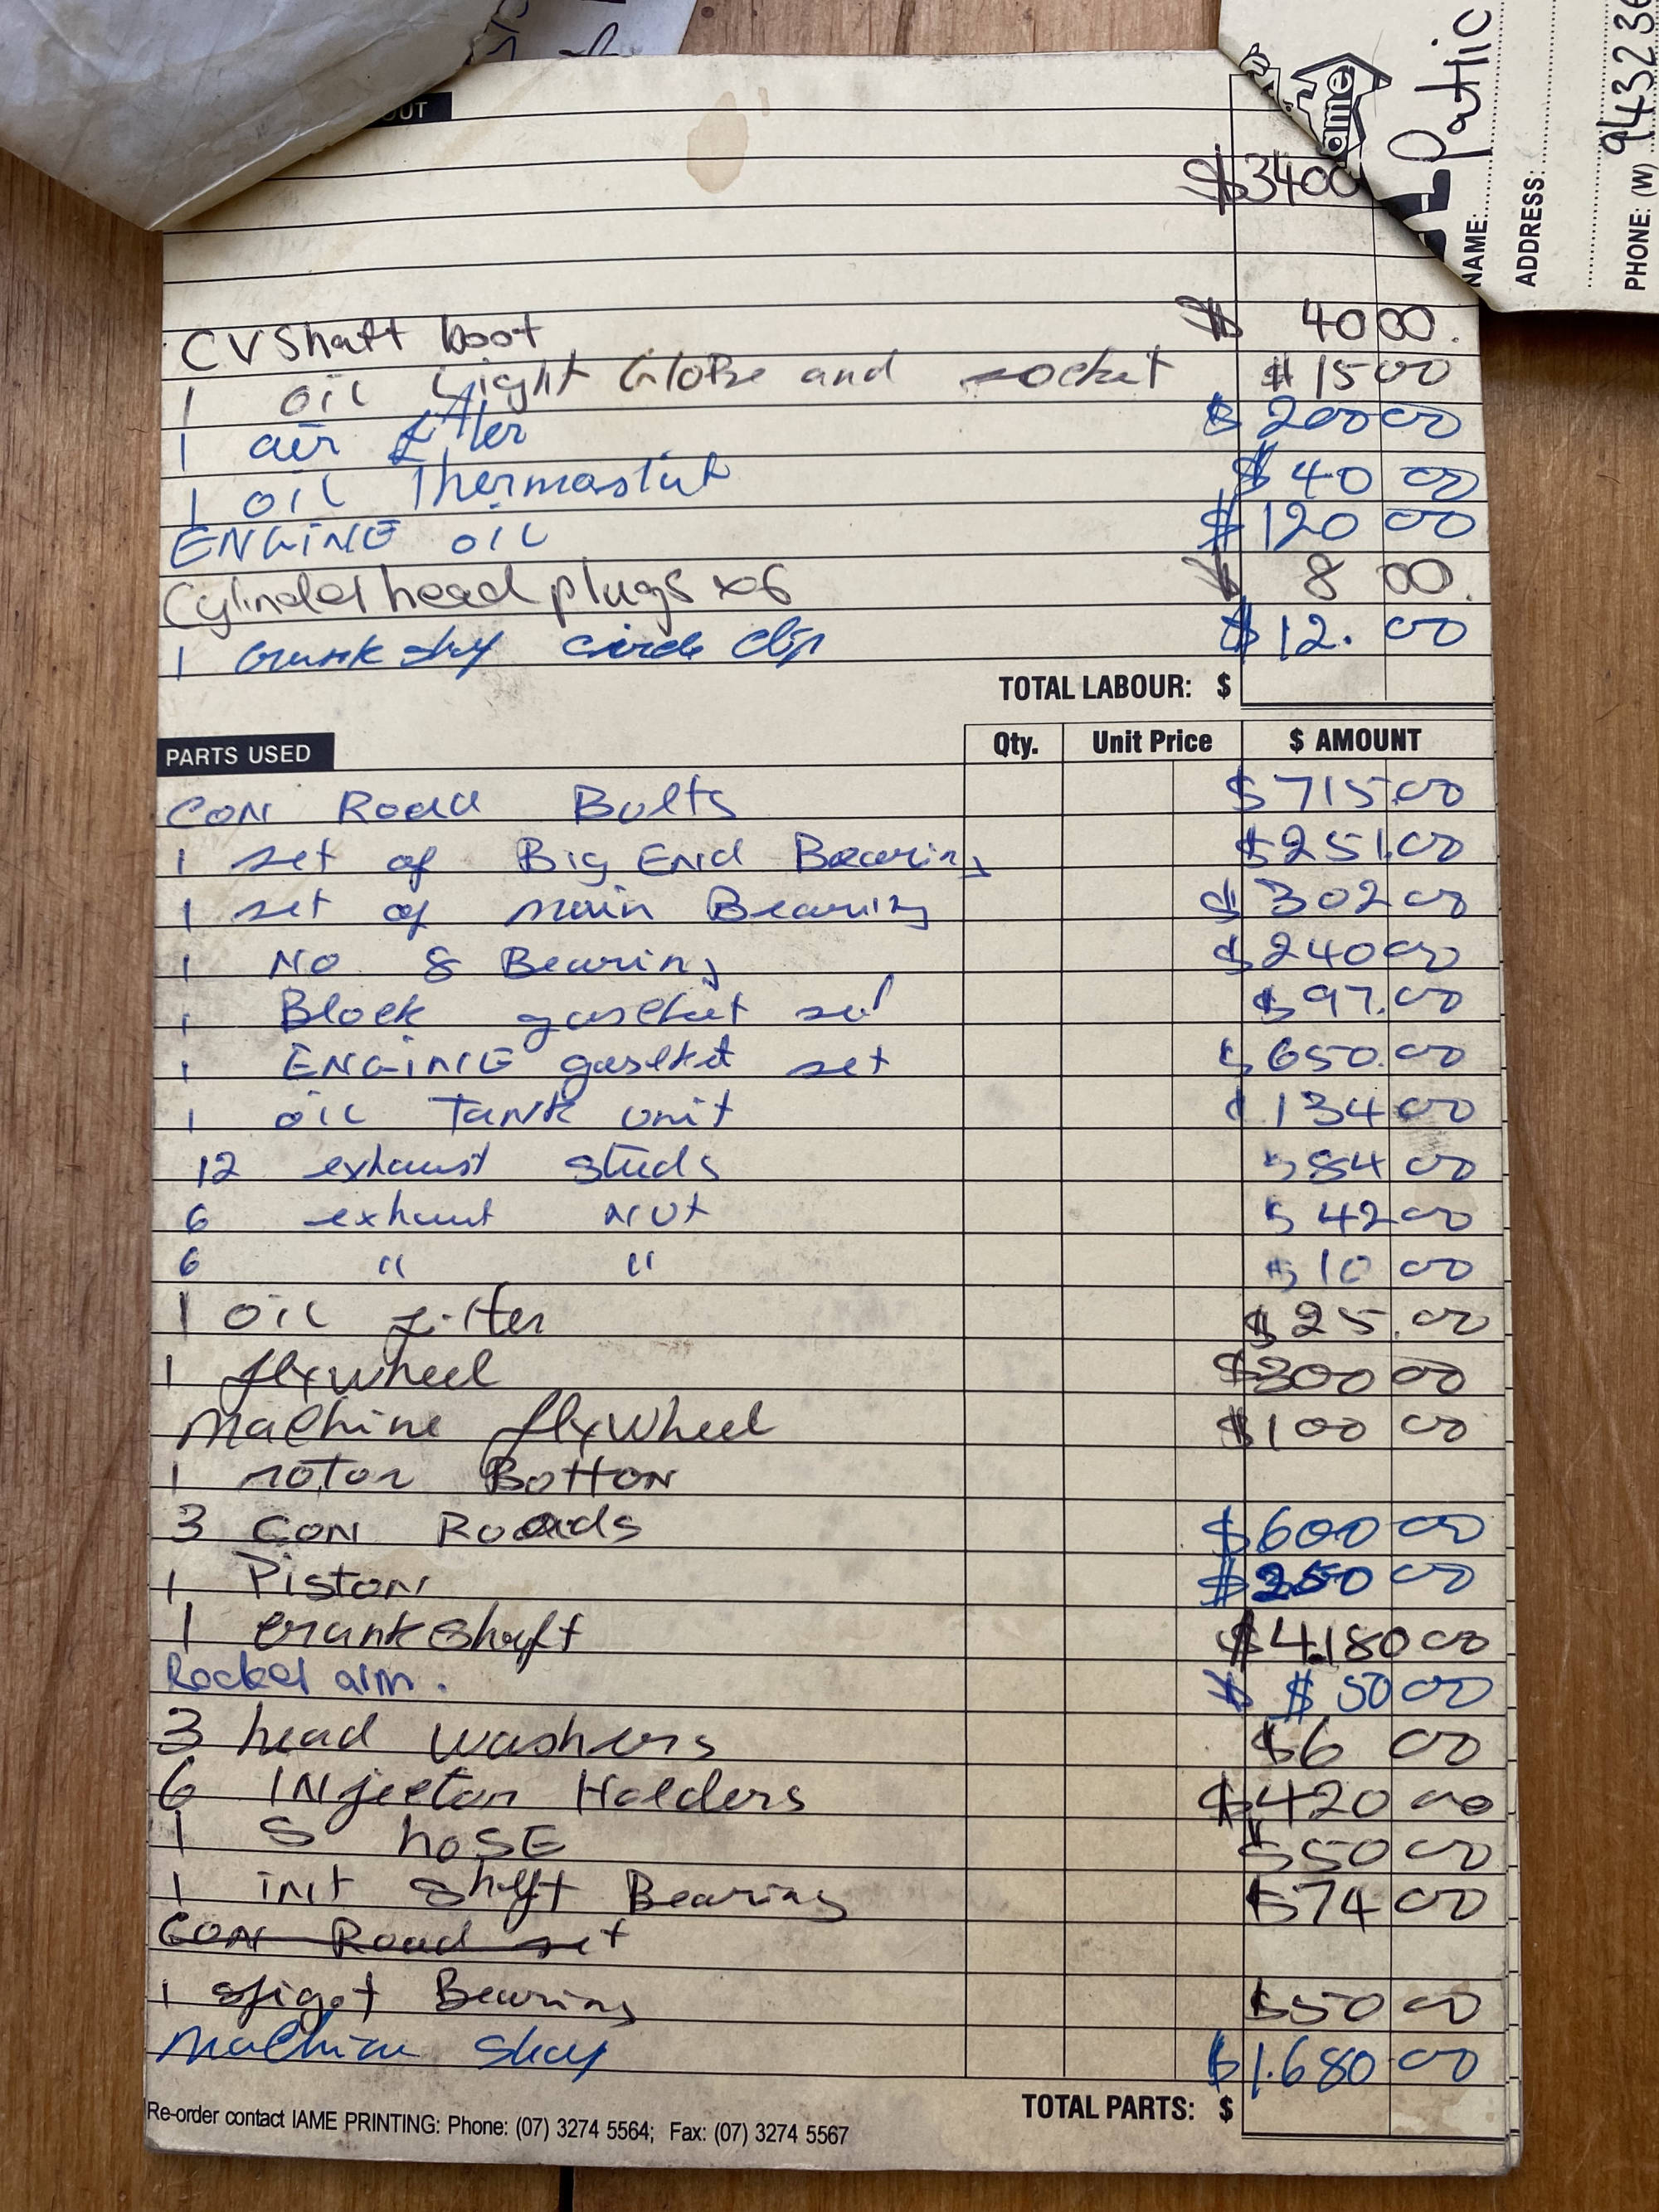 OUT
ame
$3400
Patric
NAME:
ADDRESS:
PHONE: (W) 943236
CV Shaft boot $ 40 00.
1 oil Light Globe and socket $ 15 00
1 air filter $ 200 00
1 oil Thermostut $ 40 00
ENGINE oil $ 120 00
Cylinder head plugs x6 $ 8 00.
1 crank shaf circle clip $ 12. 00
TOTAL LABOUR: $
PARTS USED Qty. Unit Price $ AMOUNT
CON Road Bolts $ 715.00
1 set of Big End Bearing $ 251.00
1 set of main Bearing $ 302 00
1 No 8 Bearing $ 240 00
1 Block gasket set $ 97.00
1 ENGINE gasket set $ 650.00
1 oil TANK unit $ 134 00
12 exhaust studs $ 84 00
6 exhaust NUt $ 42 00
6 " " $ 10 00
1 oil filter $ 25.00
1 flywheel $ 300 00
Machine flywheel $ 100 00
1 rotor Botton
3 CON Roads $ 600 00
1 Piston $ 00
1 crankshaft $ 4.180 00
Rocker arm. $ $ 50 00
3 head washers $6 00
6 INjector Holders $ 420 00
1 S hoSE $50 00
1 int shaft Bearing $74 00
CON Road set
1 spigot Bearing $50 00
Machine Shop $1.680.00
TOTAL PARTS: $
Re-order contact IAME PRINTING: Phone: (07) 3274 5564; Fax: (07) 3274 5567